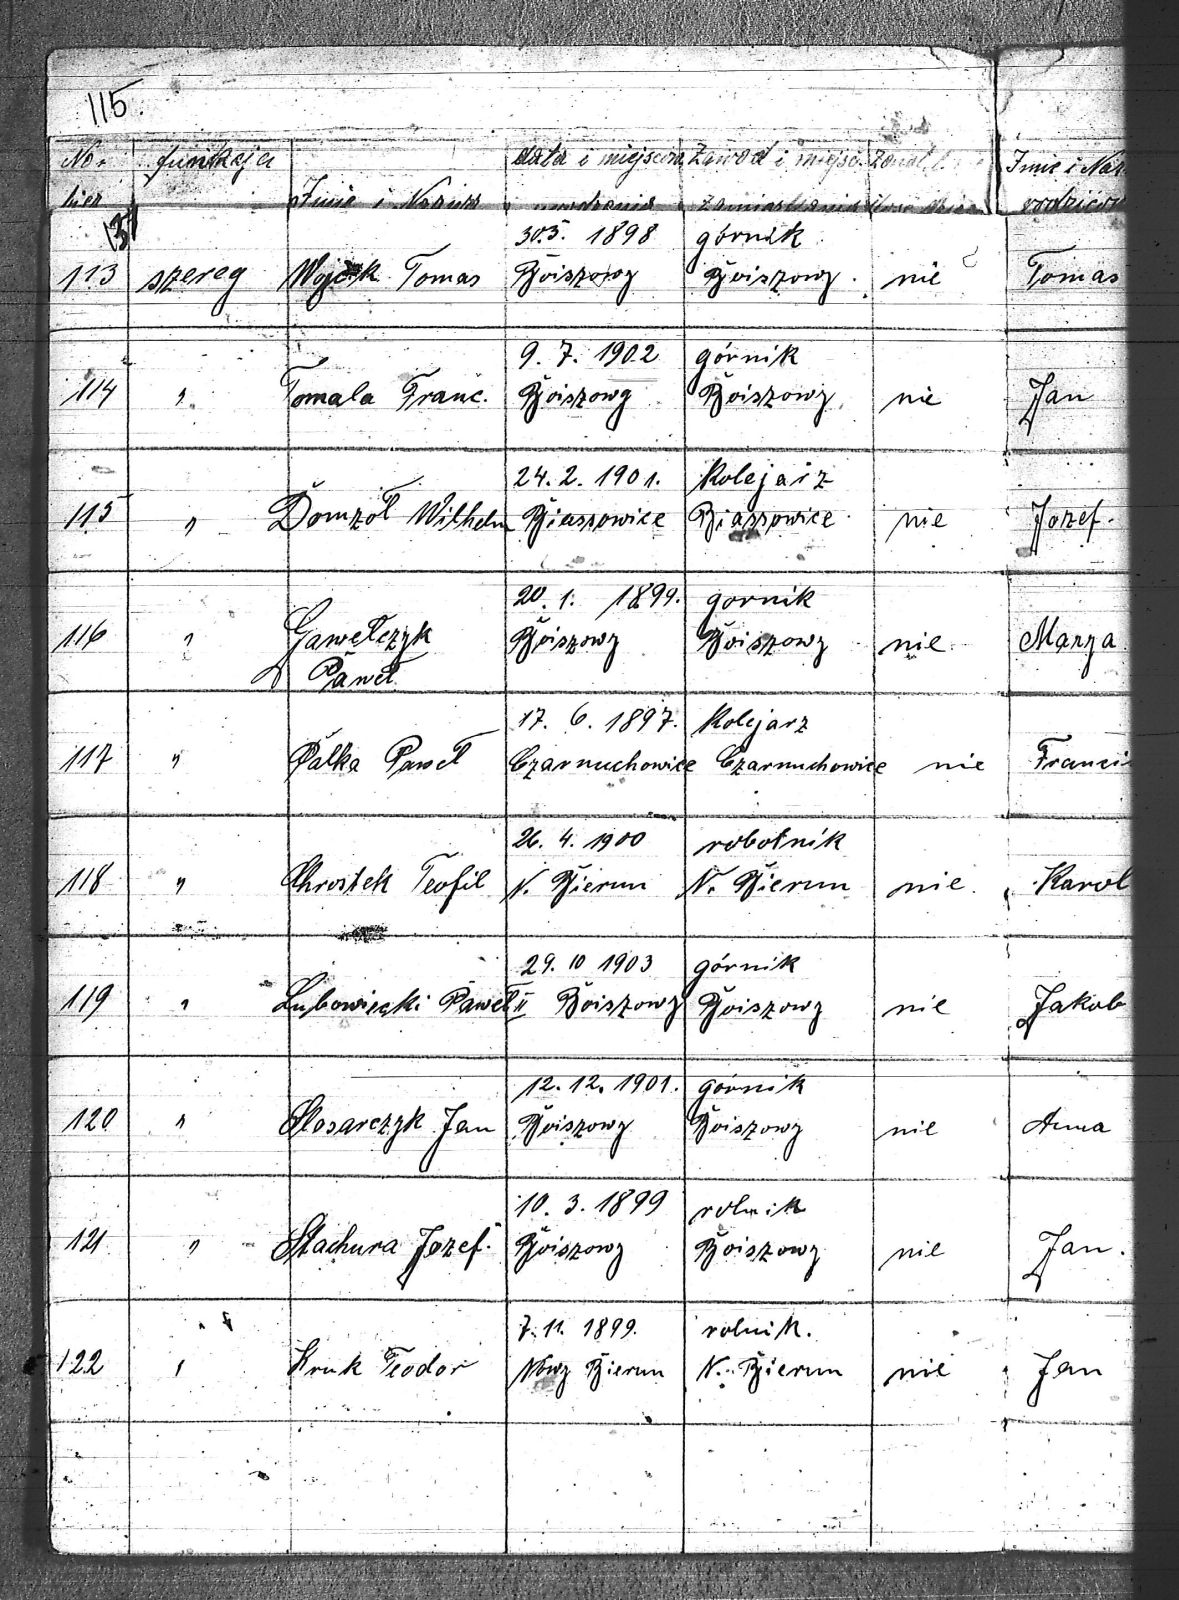 115.
No- funkcja data i miejscow Zawod i miejsc. Imie i Naz
bier Imie i Nazwis urodzenia Zamieszkania rodziców
30.5. 1898 górnik
113 szereg Wojcik Tomas Bojszowy Bojszowy. nie Tomas
9. 7. 1902 górnik
114 " Tomala Franc. Bojszowy Bojszowy nie Jan
24. 2. 1901. Kolejarz
115 " Domzoł Wilhelm Biassowice Biassowice nie Jozef.
20. 1. 1899. gornik
116 " Gawełczyk Bojszowy Bojszowy nie Marya
Paweł
17. 6. 1897. Kolejarz
117 " Pałka Paweł Czarnuchowice Czarnuchowice nie Franci
26. 4. 1900 robotnik
118 " Chrostek Teofil N. Bierun N. Bierun nie Karol
29. 10 1903 górnik
119 " Lubowiecki Paweł II Bojszowy Bojszowy nie Jakob
12. 12. 1901. górnik
120 " Slosarczyk Jan Bojszowy Bojszowy nie Anna
10. 3. 1899 rolnik
121 " Stachura Jozef. Bojszowy Bojszowy nie Jan.
7. 11. 1899. rolnik.
122 " Kruk Teodor Nowy Bierun N. Bierun nie Jan